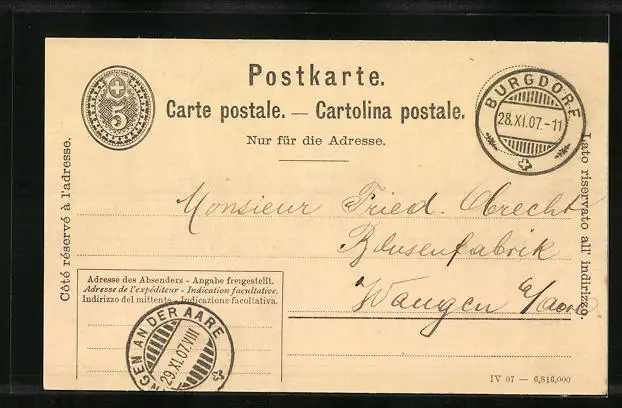 5
Postkarte.
Carte postale. — Cartolina postale.
Nur für die Adresse.
BURGDORF
28.XI.07.-11
Côté réservé à l'adresse.
Lato riservato all' indirizzo.
Monsieur Fried. Obrecht
Blusenfabrik
Wangen a/aare
Adresse des Absenders - Angabe freigestellt.
Adresse de l'expéditeur - Indication facultative.
Indirizzo del mittente - Indicazione facoltativa.
NGEN AN DER AARE
29.XI.07.VIII
IV 07 — 6,816,000